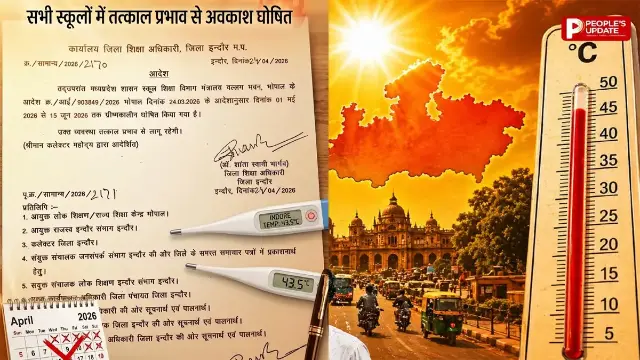 सभी स्कूलों में तत्काल प्रभाव से अवकाश घोषित
PEOPLE'S
UPDATE
कार्यालय जिला शिक्षा अधिकारी, जिला इन्दौर म.प्र.
क्र./सामान्य/2026/2170
इन्दौर, दिनांक /04/2026
आदेश
मध्यप्रदेश शासन स्कूल शिक्षा विभाग मंत्रालय वल्लभ भवन, भोपाल के
आदेश क्र./आई/903849/2026 भोपाल दिनांक 24.03.2026 के आदेशानुसार दिनांक 01 मई
2026 से 15 जून 2026 तक ग्रीष्मकालीन घोषित किया गया है।
उक्त व्यवस्था तत्काल प्रभाव से लागू रहेगी।
(श्रीमान कलेक्टर महोदय द्वारा आदेशित)
(डॉ. शांता स्वामी भार्गव)
जिला शिक्षा अधिकारी
जिला इन्दौर
इन्दौर, दिनांक /04/2026
पृ.क्र./सामान्य/2026/2171
प्रतिलिपि :-
1. आयुक्त लोक शिक्षण/राज्य शिक्षा केन्द्र भोपाल।
2. आयुक्त राजस्व इन्दौर संभाग इन्दौर।
3. कलेक्टर जिला इन्दौर।
4. संयुक्त संचालक जनसंपर्क संभाग इन्दौर की ओर जिले के समस्त समाचार पत्रों में प्रकाशनार्थ
हेतु।
5. संयुक्त संचालक लोक शिक्षण इन्दौर संभाग इन्दौर।
कार्यपालन अधिकारी जिला पंचायत जिला इन्दौर।
की ओर सूचनार्थ एवं पालनार्थ।
जिला इन्दौर की ओर सूचनार्थ एवं पालनार्थ।
जिला इन्दौर की ओर सूचनार्थ एवं पालनार्थ।
INDORE
TEMP: 43.5°C
43.5°C
April 2026
°C
50
45
40
35
30
25
20
15
10
5